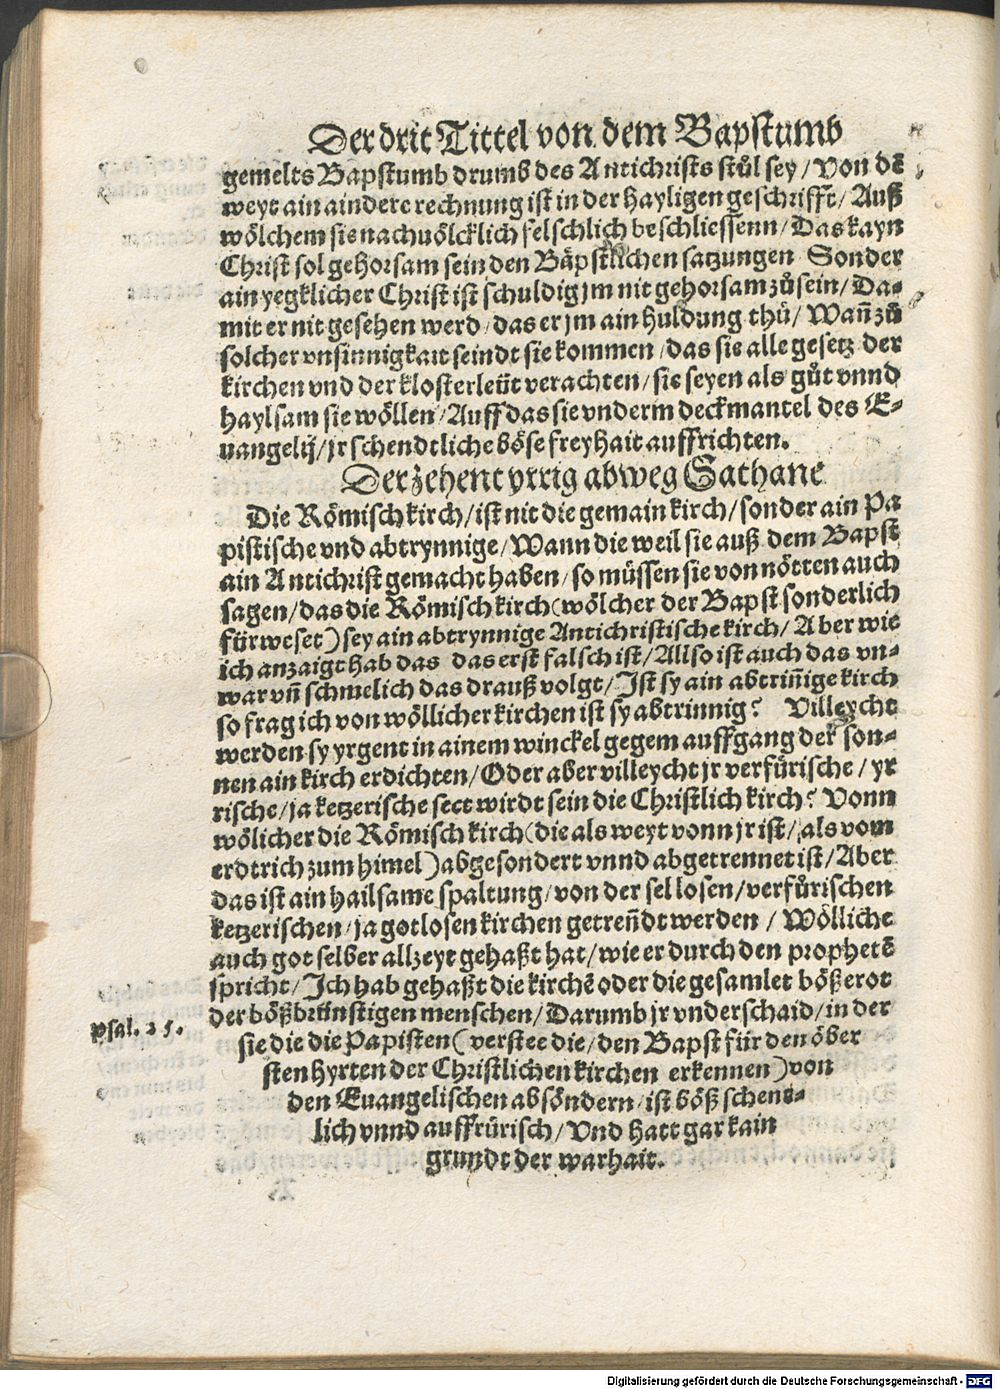 Der drit Tittel von dem Bapstumb
gemelts Bapstumb drumb des Antichrists stůl sey / Von dē
weyt ain aindere rechnung ist in der hayligen geschrifft / Auß
wölchem sie nachuölcklich felschlich beschliessenn / Das kayn
Christ sol gehorsam sein den Bäpstlichen satzungen Sonder
ain yegklicher Christ ist schuldig jm nit gehorsam zů sein / Da⸗
mit er nit gesehen werd / das er jm ain huldung thů / Wañ zů
solcher vnsinnigkait seindt sie kommen / das sie alle gesetz der
kirchen vnd der klosterleüt verachten / sie seyen als gůt vnnd
haylsam sie wöllen / Auff das sie vnderm deckmantel des E⸗
uangelij / jr schendtliche böse freyhait auffrichten.
Der zehent yrrig abweg Sathane
Die Römisch kirch / ist nit die gemain kirch / sonder ain Pa
pistische vnd abtrynnige / Wann die weil sie auß dem Bapst
ain Antichrist gemacht haben / so müssen sie von nötten auch
sagen / das die Römisch kirch (wölcher der Bapst sonderlich
fürweset) sey ain abtrynnige Antichristische kirch / Aber wie
ich anzaigt hab das das erst falsch ist / Allso ist auch das vn⸗
war vñ schmelich das drauß volgt / Ist sy ain abtriñige kirch
so frag ich von wöllicher kirchen ist sy abtrinnig? Villeycht
werden sy yrgent in ainem winckel gegem auffgang der son⸗
nen ain kirch erdichten / Oder aber villeycht jr verfůrische / yr
rische / ja ketzerische sect wirdt sein die Christlich kirch? Vonn
wölicher die Römisch kirch (die als weyt vonn jr ist / als vom
erdtrich zum himel) abgesondert vnnd abgetrennet ist / Aber
das ist ain hailsame spaltung / von der sellosen / verfůrischen
ketzerischen / ja gotlosen kirchen getreñdt werden / Wölliche
auch got selber allzeyt gehaßt hat / wie er durch den prophetē
spricht / Ich hab gehaßt die kirchē oder die gesamlet bößerot
der bößbrünstigen menschen / Darumb jr vnderschaid / in der
Psal. 25.
sie die die Papisten (verstee die / den Bapst für den öber
sten hyrten der Christlichen kirchen erkennen) von
den Euangelischen absöndern / ist böß schent⸗
lich vnnd auffrürisch / Vnd hatt gar kain
grundt der warhait.
Digitalisierung gefördert durch die Deutsche Forschungsgemeinschaft - DFG